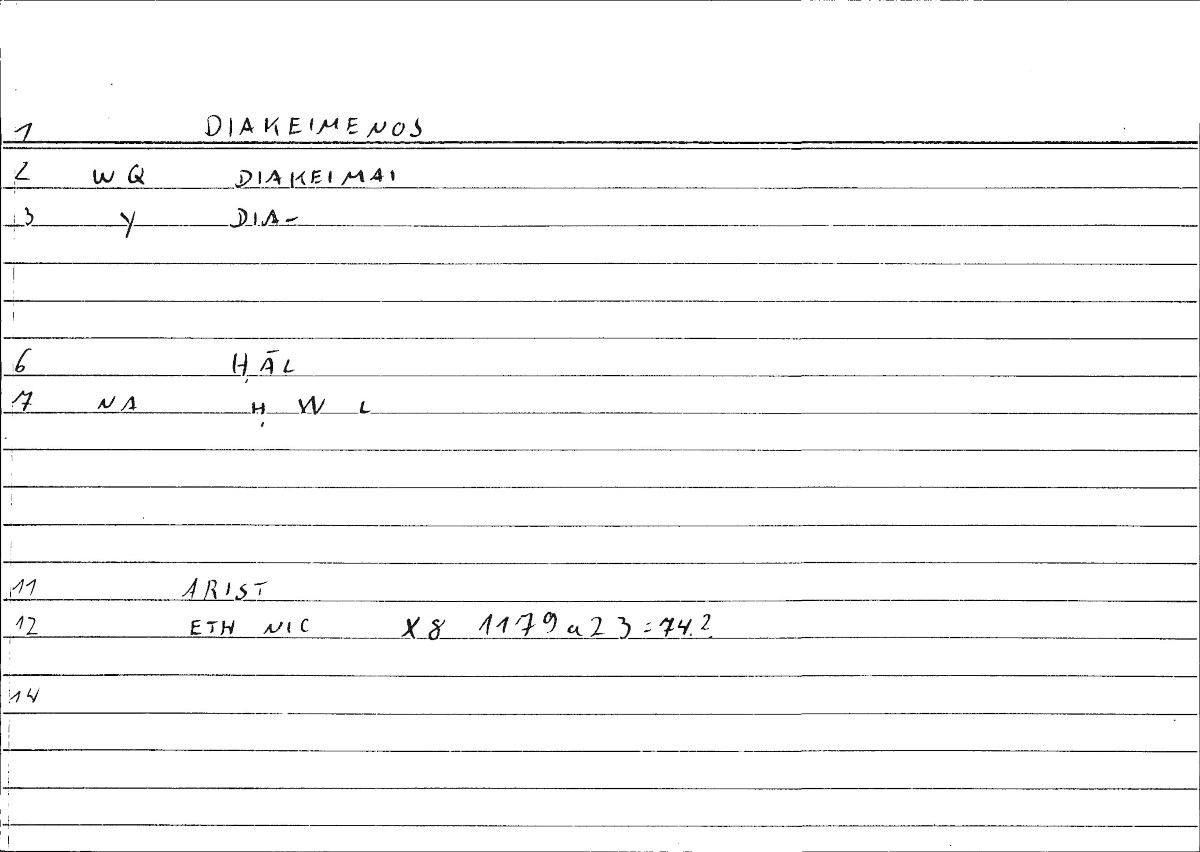 1 DIAKEIMENOS
2 WQ DIAKEIMAI
3 Y DIA-
6 ḤĀL
7 NA Ḥ W L
11 ARIST
12 ETH NIC X8 1179a23=74.2.
14